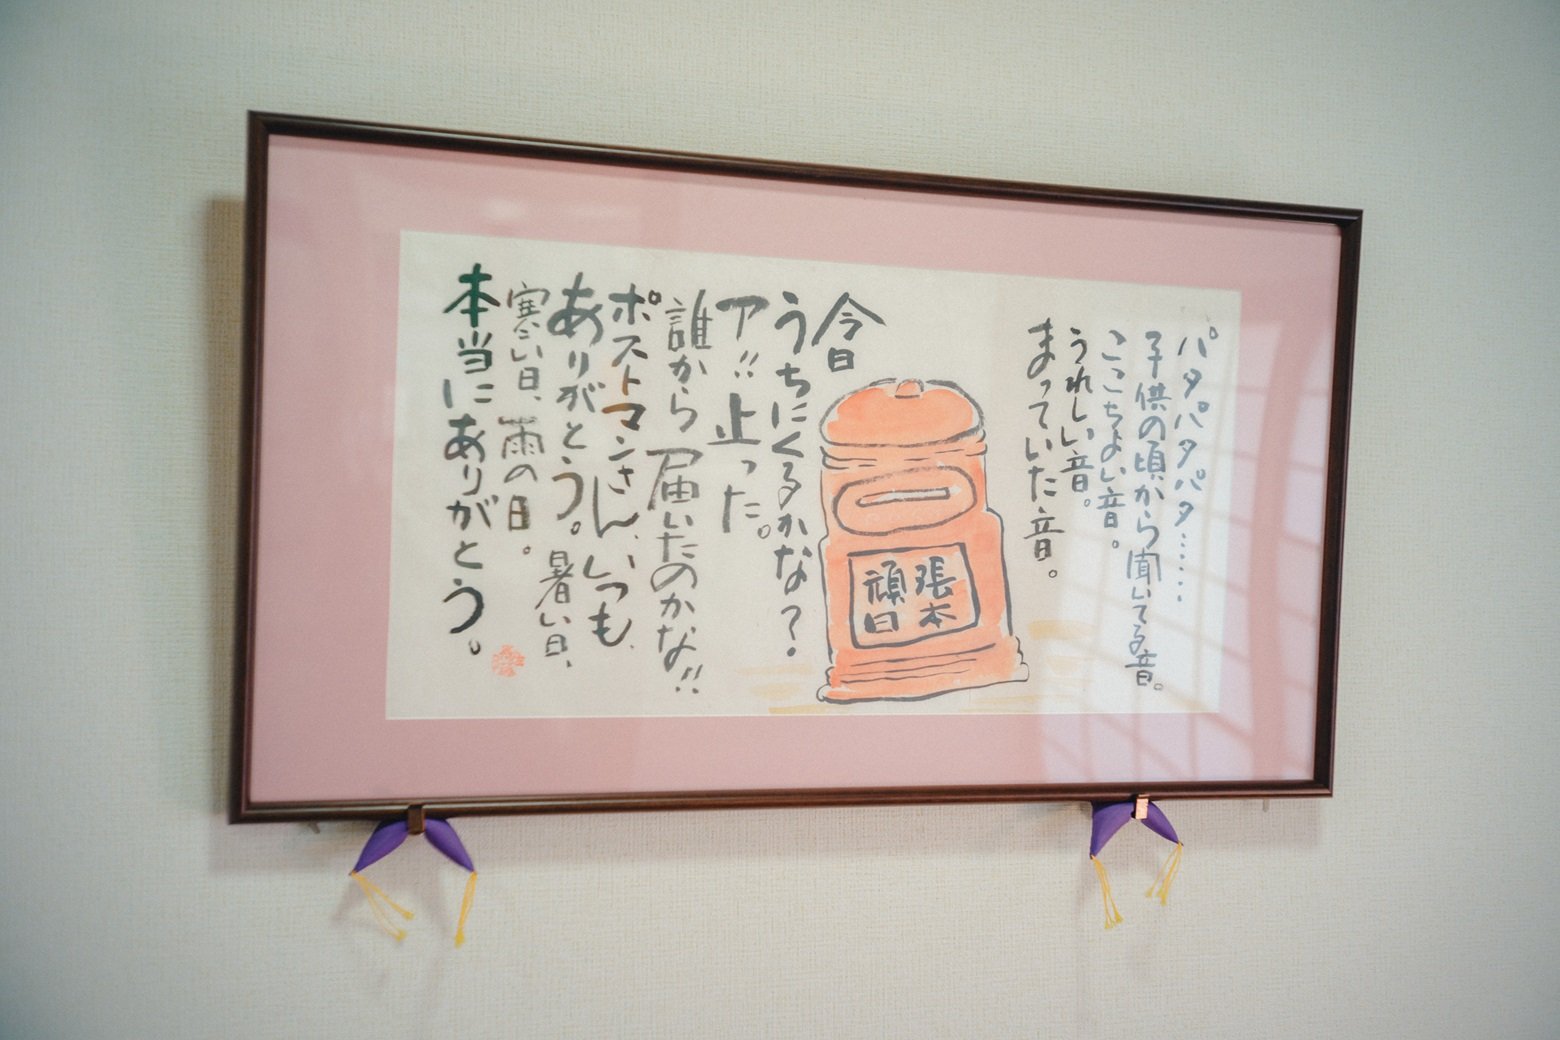 パタパタパタ……
子供の頃から聞いてる音。
ここちよい音。
うれしい音。
まっていた音。
頑張
日本
今日
うちにくるかな?
ア!!止った。
誰から届いたのかな!!
ポストマンさん、いつも
ありがとう。暑い日、
寒い日、雨の日。
本当にありがとう。